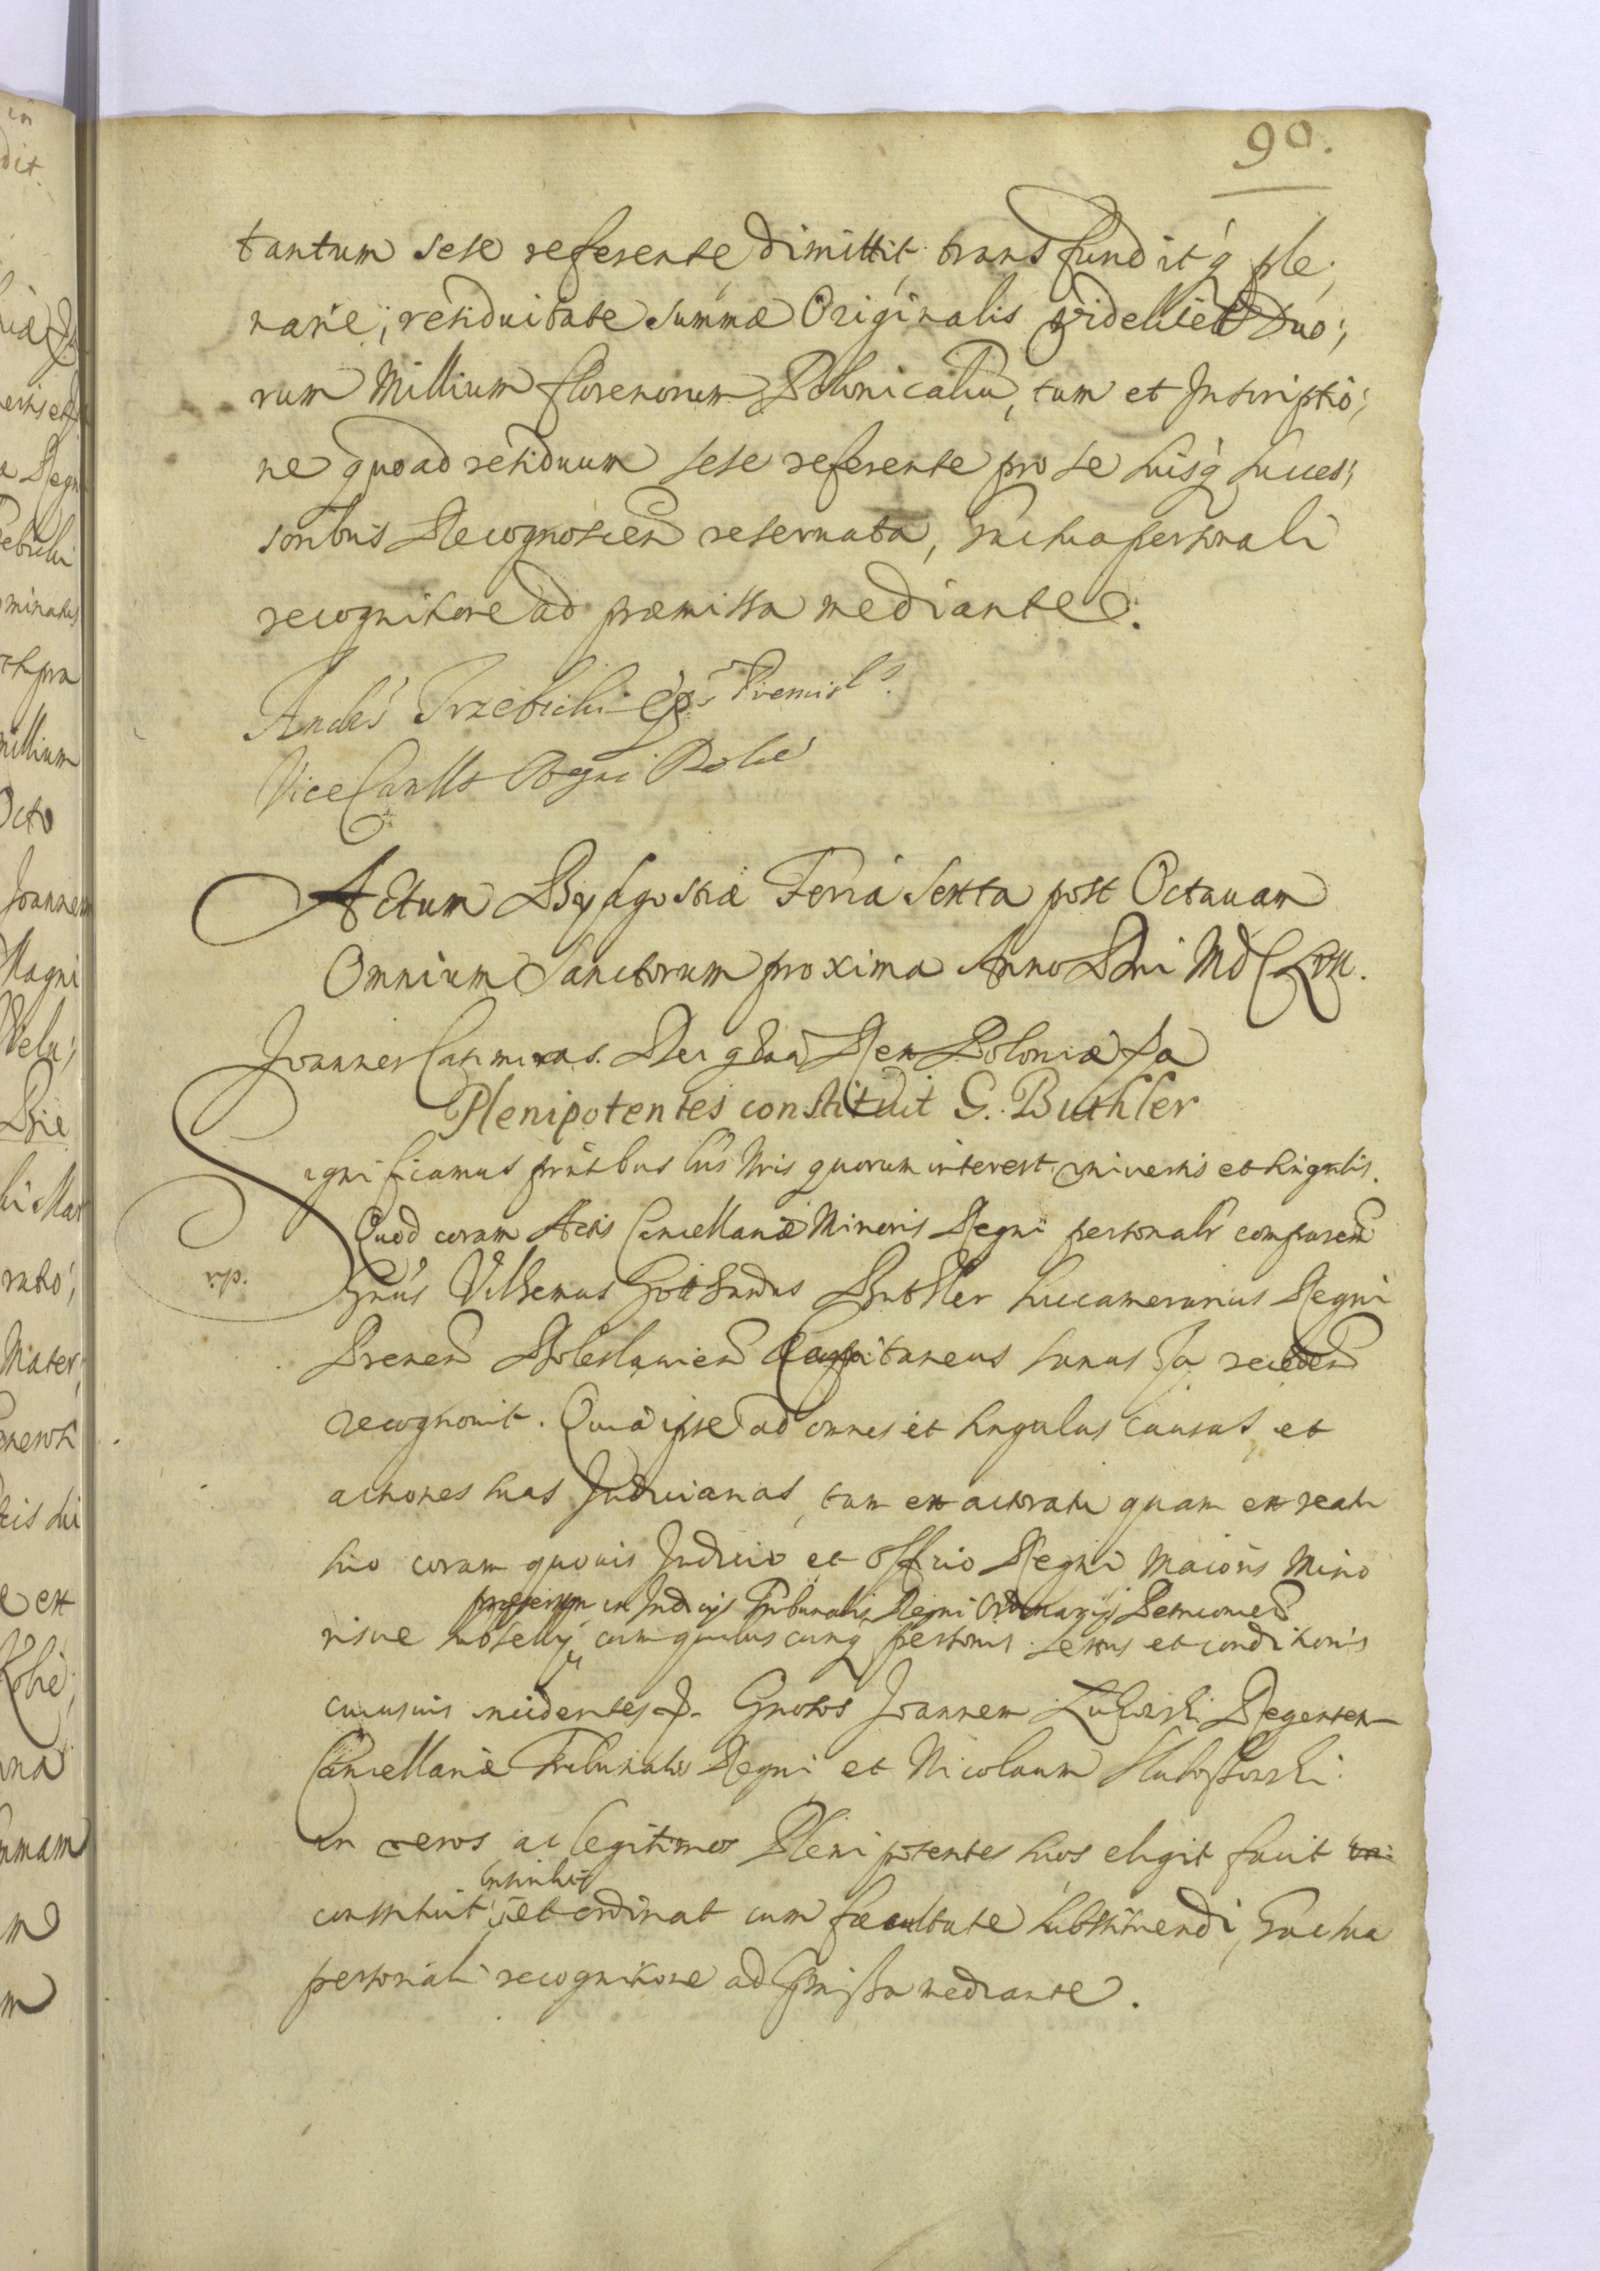 90.
tantum sese referente dimittit transfunditq ple,
narie, residuitate summæ Originalis videlicet Duo,
rum Millium florenorum Polonicaliu, tum et Inscriptio,
ne quoad residuum sese referente pro se suisq succes,
soribus Recognoscen reservata, sua personali
recognitione ad præmissa mediante.
Andrs Trzebicki Eps Premisls
Vice Canlls Regni Polie
Actum Bydgostiæ Feria Sexta post Octavam
Omnium Sanctorum proxima Anno Dni
Joannes Casimirus Dei gtia Rex Poloniæ
Plenipotentes constituit G. Buthler
Significamus prntibus Lris Nris quorum interest universis et singulis.
Quod coram Actis Cancellariæ Minoris Regni personalr comparen
Gnus Vilhemus Buthler Succamerarius Regni
Capitaneus sanus
recognovit. Quia ipse ad omnes et singulas causas et
actiones suas Judiciarias, tam ex actoratu quam ex reatu
suo coram quovis Judicio et officio Regni Maioris Mino
præsertim in Judicijs Tribunalis Regni Ordinarijs
risve subsellij cum quibuscunq personis sexus et conditionis
cuiusvis incidentes Gnosos Joannem Regenten
Cancellariæ Tribunalis Regni et Nicolaum
in veros ac legitimos Plenipotentes suos eligit facit
inscribit
constituit et ordinat cum facultate substituendi, sua
personali recognitione ad præmissa mediante.